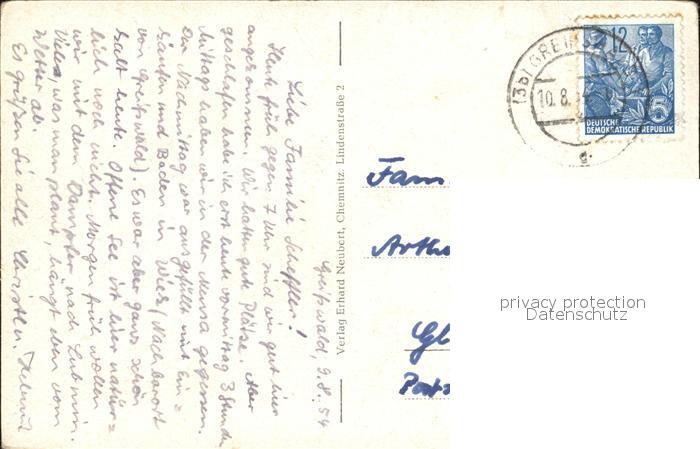 Greifswald, 9.8.54
Liebe Familie Scheffler!
Heute früh gegen 7 Uhr sind wir gut hier
angekommen. Wir hatten gute Plätze. Aber
geschlafen habe ich erst heute vormittag 3 Stunden
Mittags haben wir in der Mensa gegessen.
Der Nachmittag war ausgefüllt mit Ein=
käufen und Baden in Wiek (Nachbarort
von Greifswald). Es war aber ganz schön
kalt heute. Offene See ist hier natür=
lich noch nicht. Morgen früh wollen
wir mit dem Dampfer nach Lubmin.
Vieles, was man plant, hängt eben vom
Wetter ab.
Es grüßen Sie alle Christl u. Helmut
Verlag Erhard Neubert, Chemnitz, Lindenstraße 2
(3b) GREIFSWALD
10.8.54
12
5
DEUTSCHE
DEMOKRATISCHE REPUBLIK
Fam
Arth
Gl
Posts
privacy protection
Datenschutz